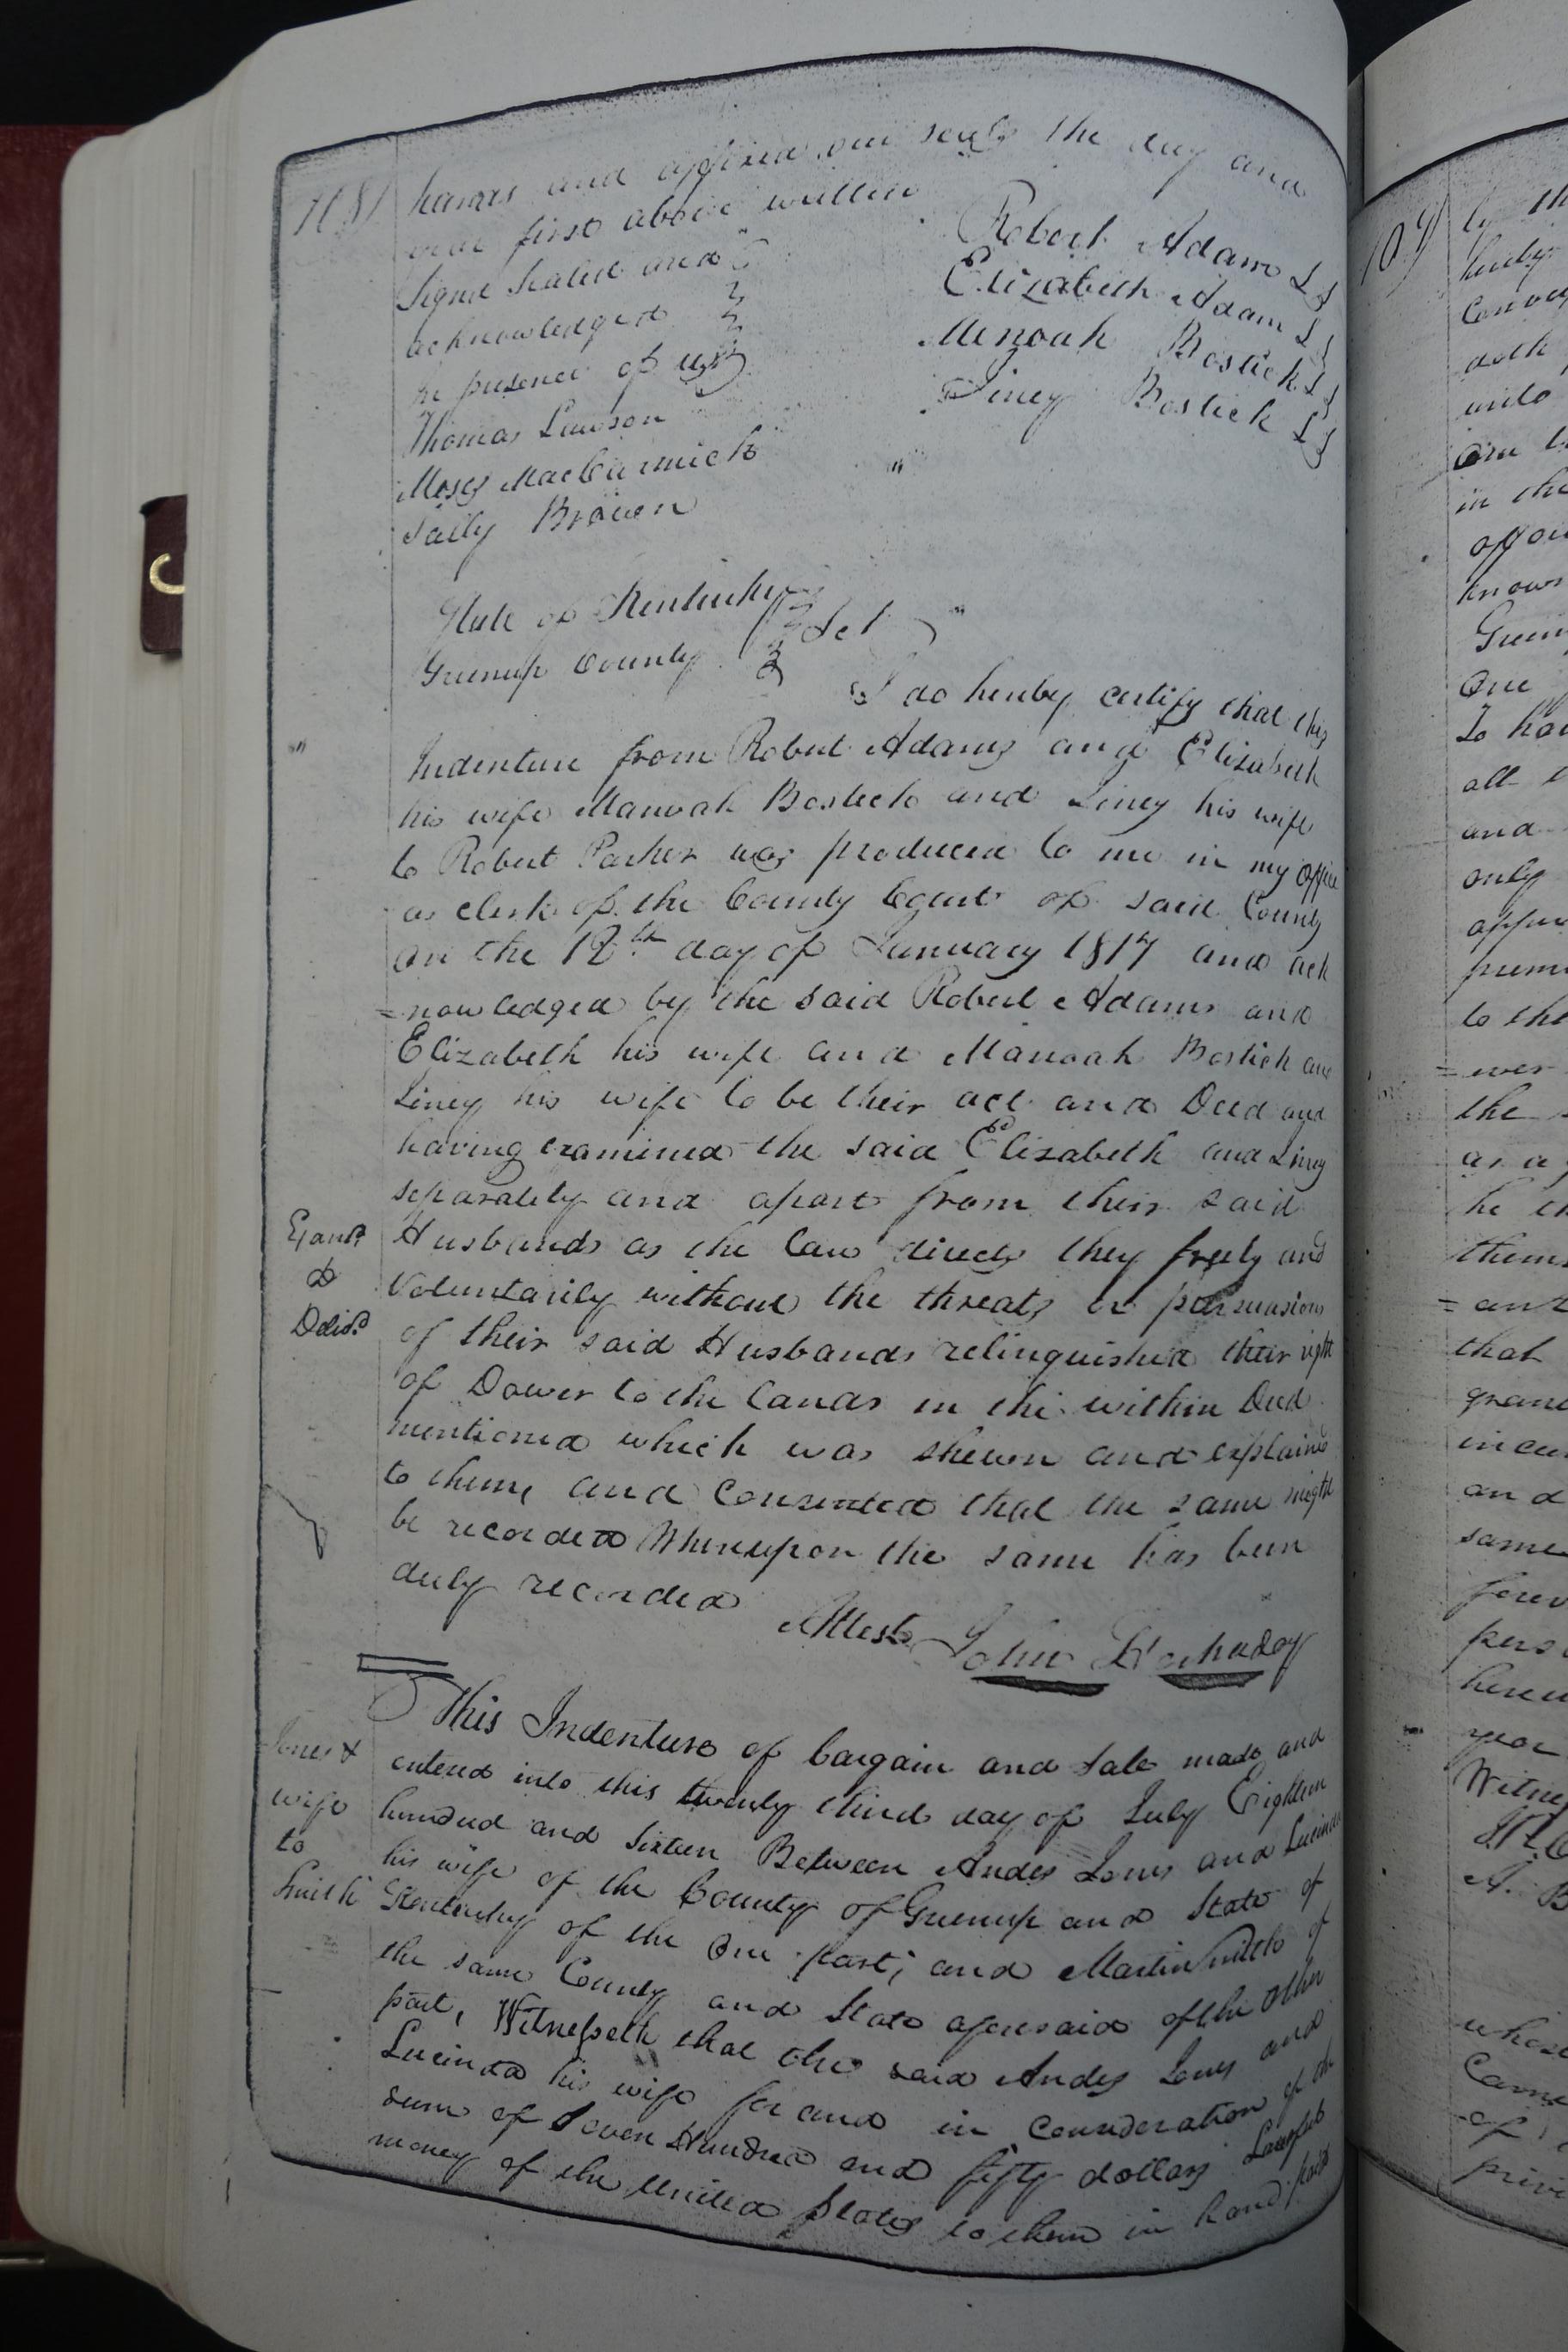 hands and affixed our seals the day and
year first above written
Signed Sealed and
acknowledged
in presence of us
Thomas Lawson
Moses MacCarmick
Sally Brown
Robert Adams LS
Elizabeth Adams LS
Menoah Bostick LS
Siney Bostick LS
State of Kentucky
Greenup County Sct
I do hereby certify that this
Indenture from Robert Adams and Elizabeth
his wife Manoah Bostick and Siney his wife
to Robert Parker was produced to me in my office
as clerk of the County Court of said County
on the 12th day of January 1817 and ack
=nowledged by the said Robert Adams and
Elizabeth his wife and Manoah Bostick and
Siney his wife to be their act and Deed and
having examined the said Elizabeth and Siney
separately and apart from their said
Husbands as the law directs they freely and
Voluntarily without the threats or persuasions
of their said Husbands relinquished their right
of Dower to the lands in the within Deed
mentioned which was shewn and explained
to them, and Consented that the same might
be recorded Whereupon the same has been
duly recorded
Attest John Hockaday
Examd
&
Delivd
This Indenture of bargain and Sale made and
entered into this twenty third day of July Eighteen
hundred and Sixteen Between Andes Jones and Lucinda
his wife of the County of Greenup and State of
Kentucky of the one part; and Martin Smith of
the same County and State aforesaid of the other
part, Witnesseth that the said Andes Jones and
Lucinda his wife for and in Consideration of the
sum of Seven Hundred and fifty dollars Lawful
money of the United States to them in hand paid
Jones &
wife
to
Smith
by th
hereby
Convey
doth
unto
in the
know
Green
One
To ha
all
and
only
prem
to the
=wer
the
as a
he
them
=ant
that
gran
and
same
forev
pers
here
year
Witne
A. B
whos
Cam
of
priv